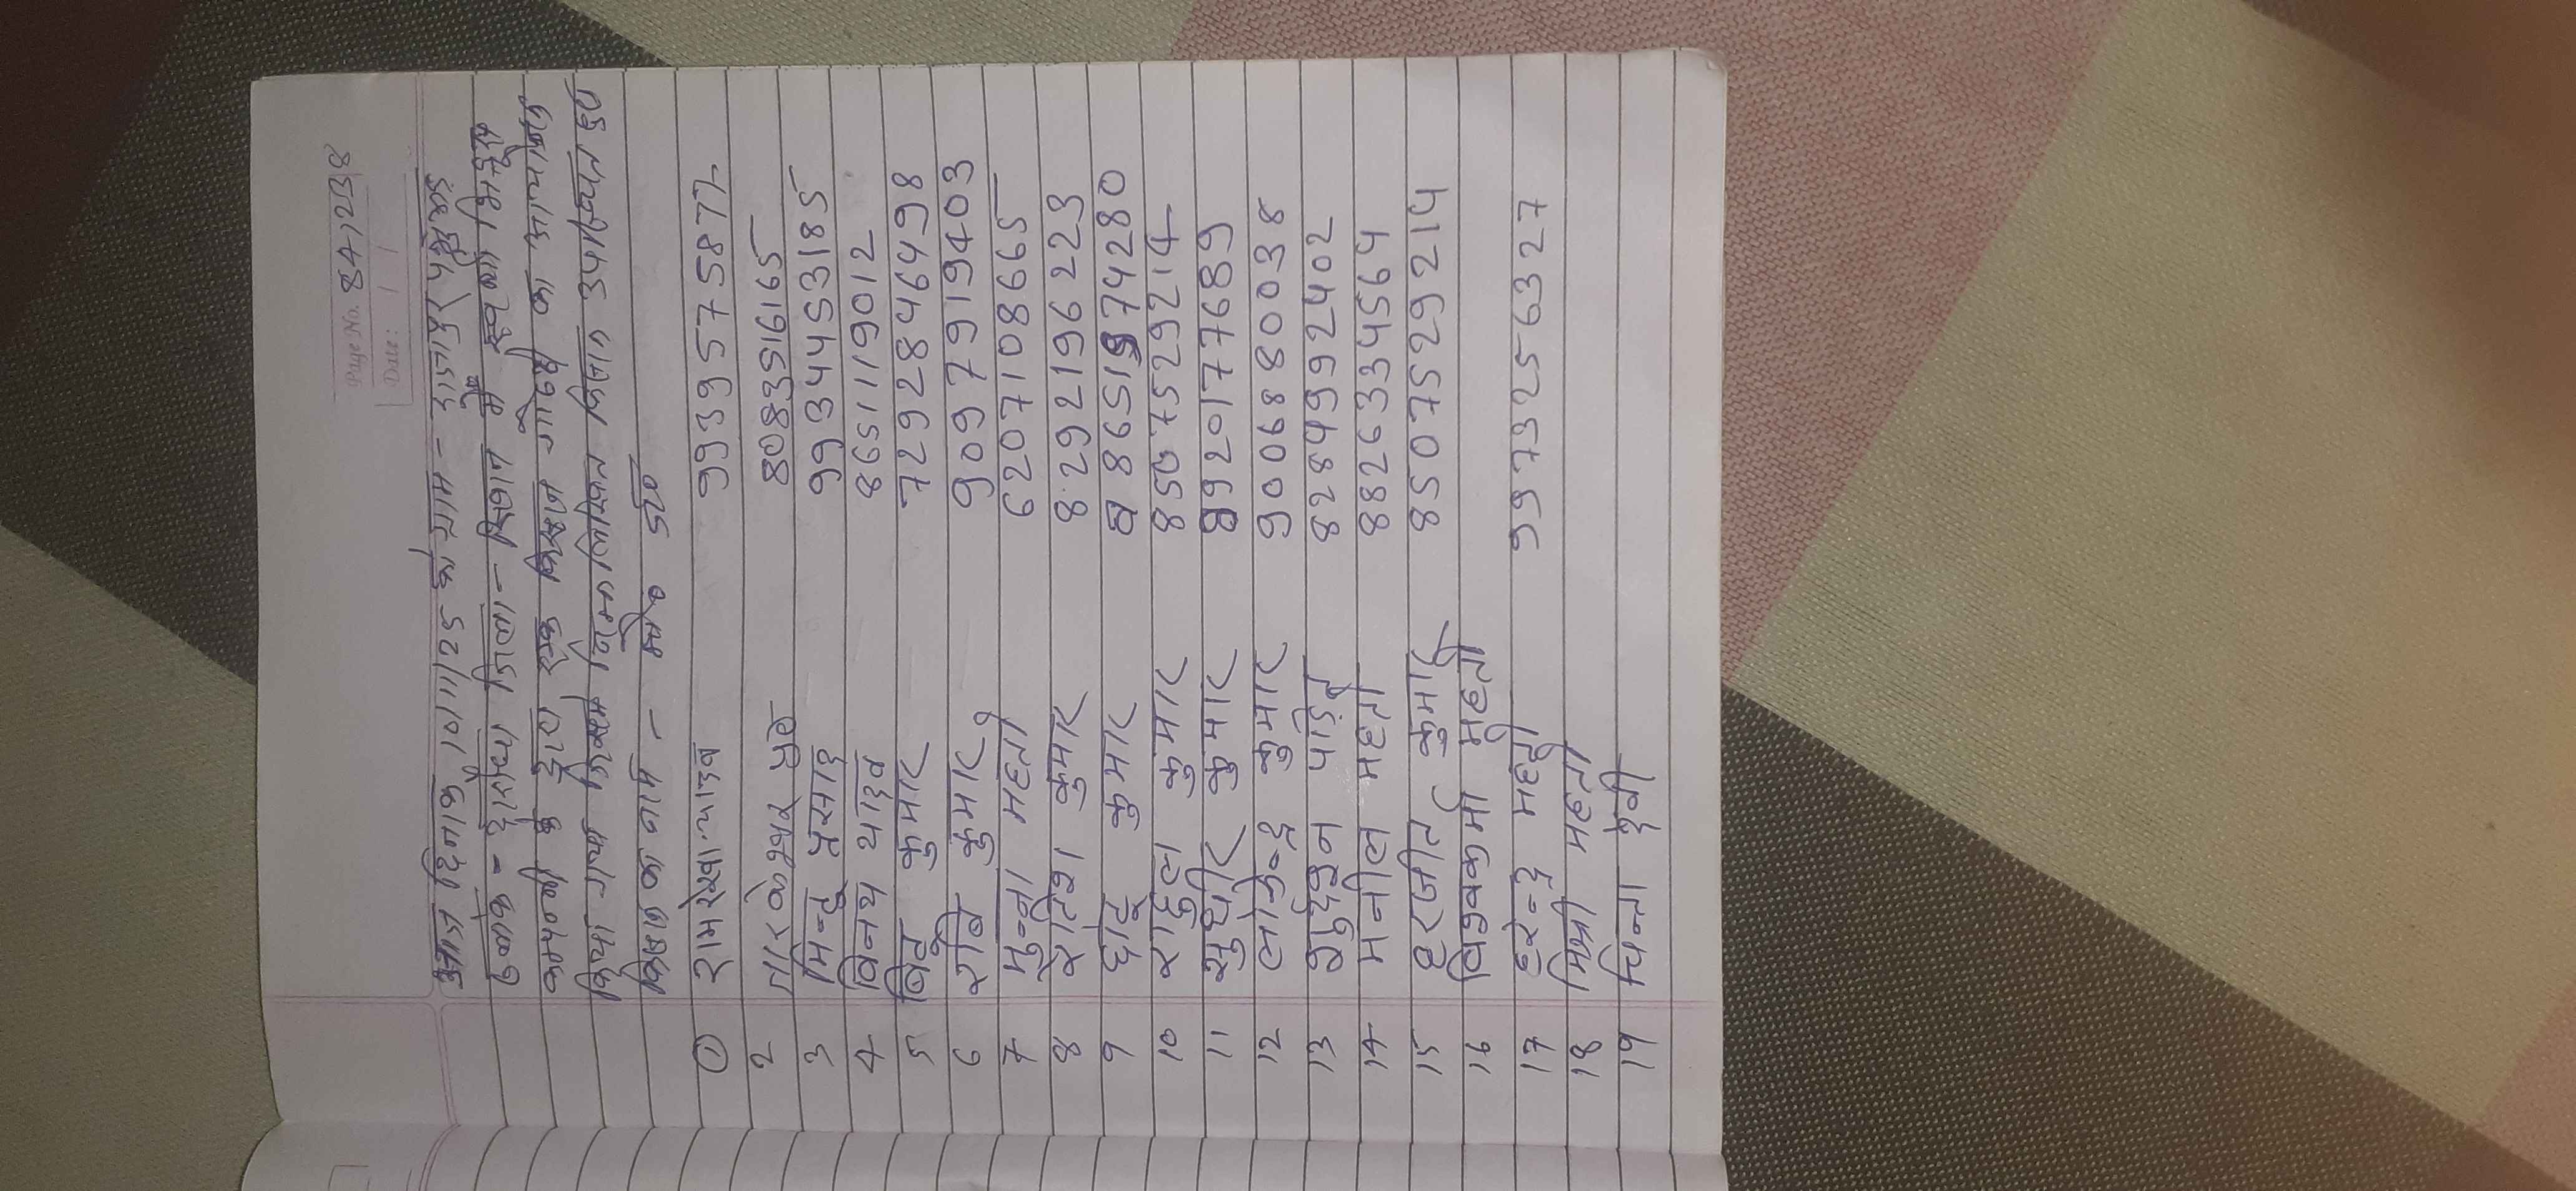 Page No. 841238
Date: / /
आज दिनांक 10/11/25 को ग्राम - राजापुर
ब्लॉक - जिला - सिवान में
कम्पनी के द्वारा एक किसान गोष्ठी का आयोजन
किया गया जिसमें निम्नलिखित किसान उपस्थित हुए
किसान का नाम - मो० नं०
① रामरेखा यादव 993957587%
2 तारकेश्वर 8083516165
3 मिन्टु प्रसाद 9934453185
4 विनय यादव 8651119012
5 कुमार 7292846498
6 रवि कुमार 9097919403
7 मुन्ना महतो 6207108665
8 रितेश कुमार 8292196223
9 छोटू कुमार 8651974280
10 राहुल कुमार 8507529214
11 सुधीर कुमार 8920177689
12 कुमार 9006880038
13 पंडित 8284992402
14 मनील महतो 8826334564
15 हरजीत कुमार 8507529214
16 विश्वकर्मा महतो
17 हरेन्द्र महतो 9973256327
18 महतो
19 चिन्ता देवी